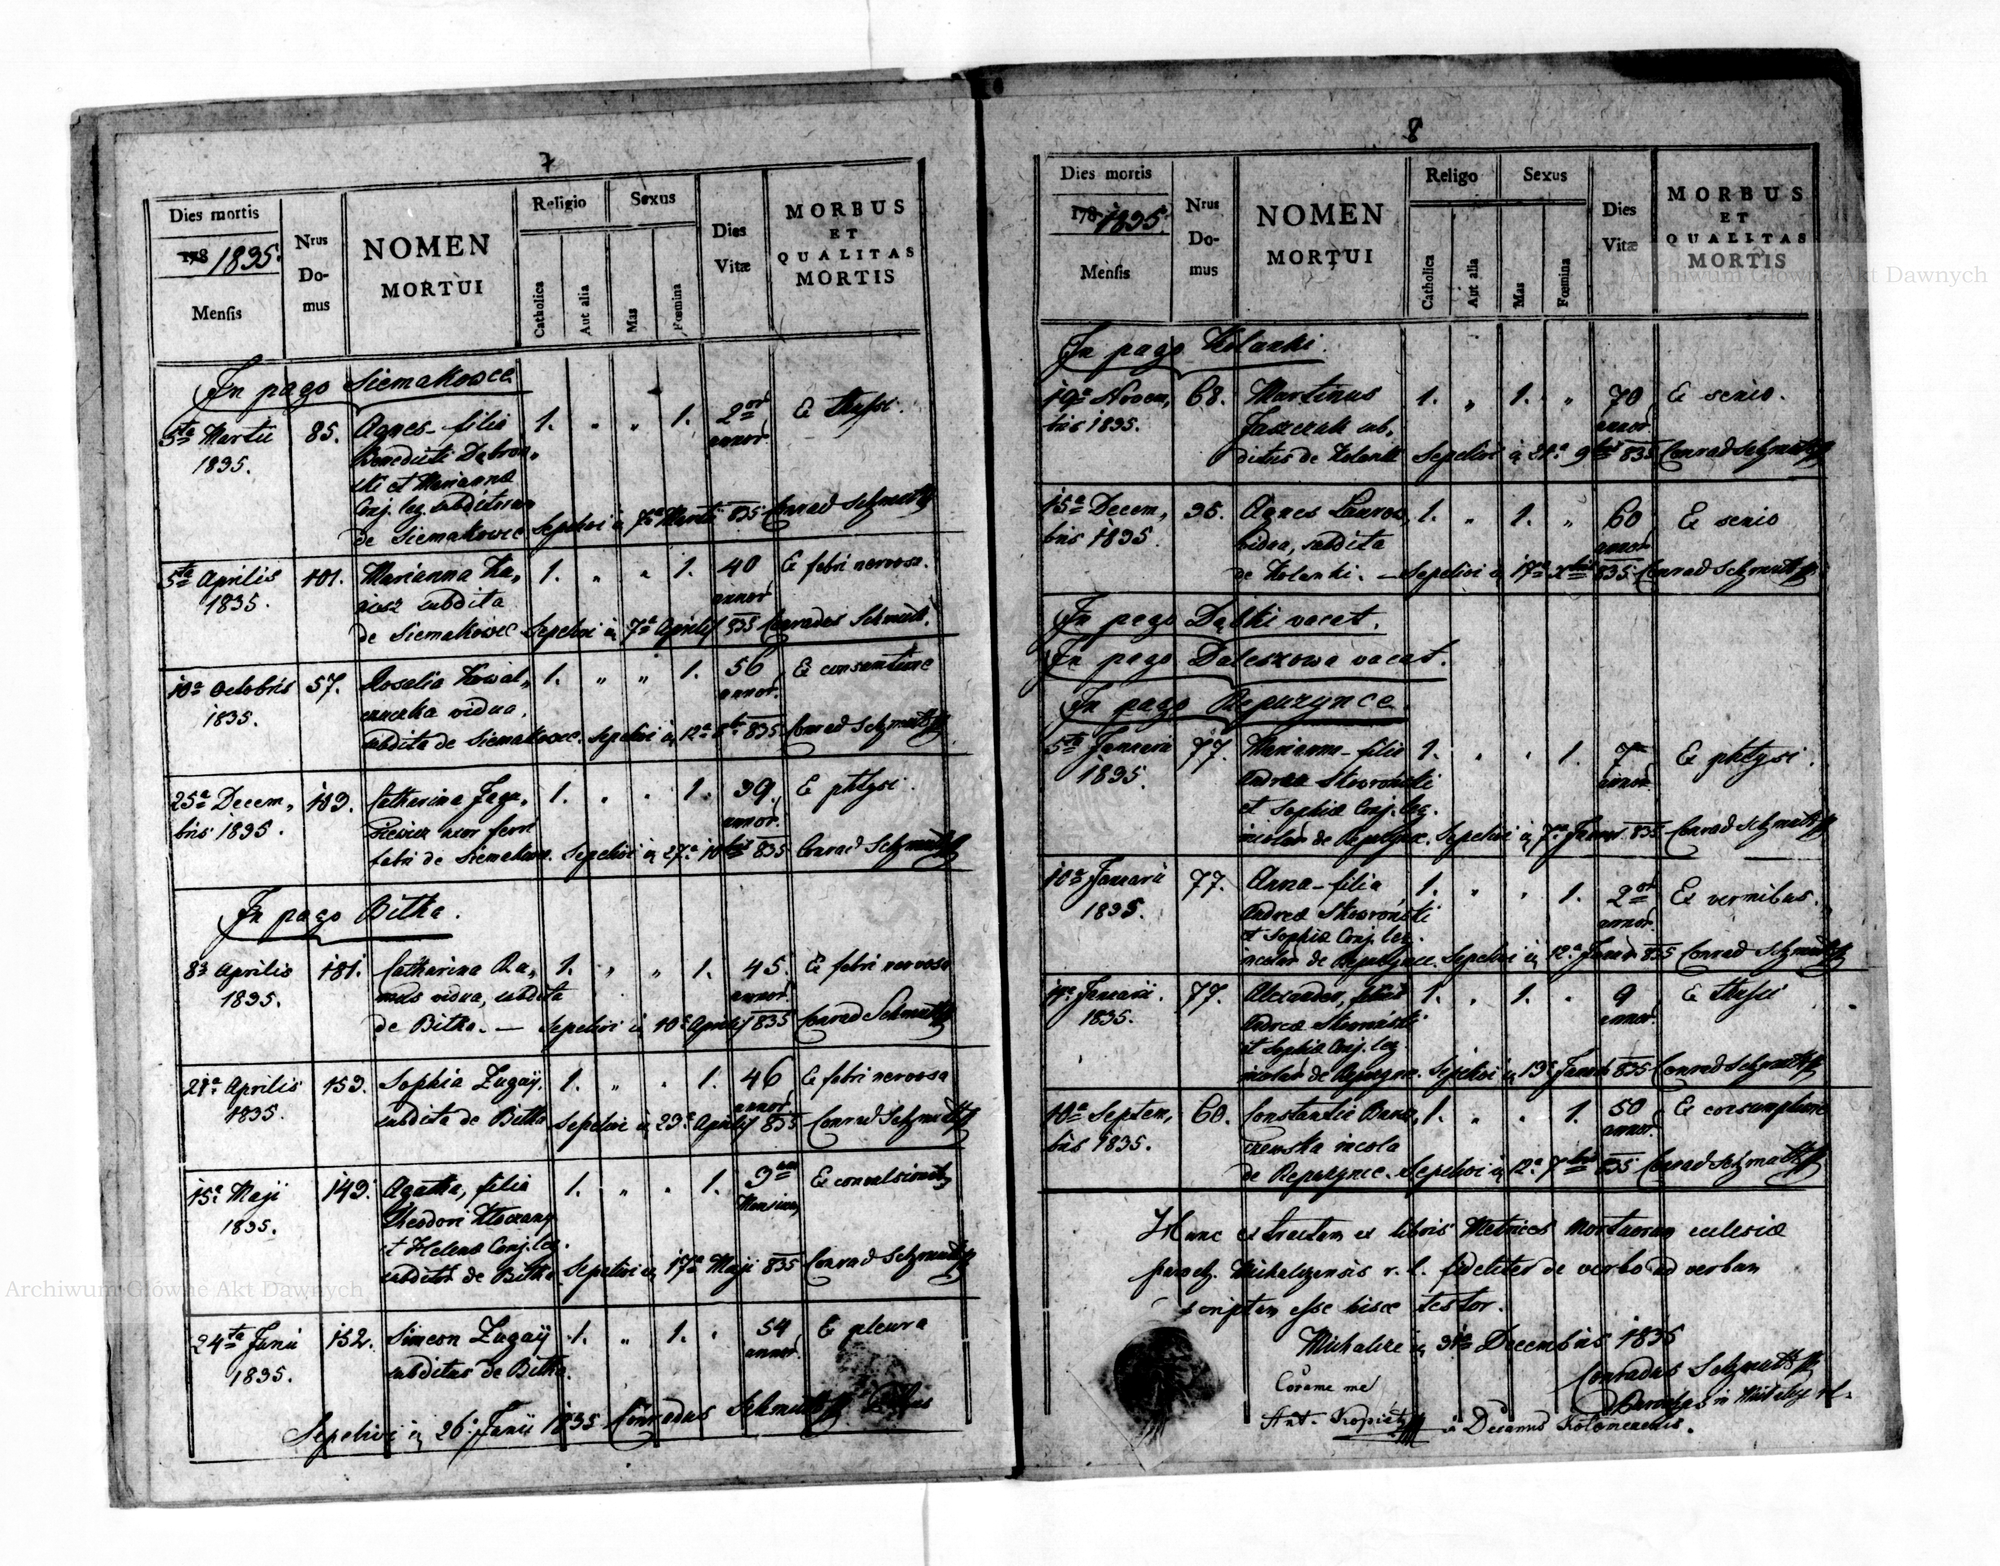 7
Dies mortis
178 1835.
Mensis
Nrus Do-mus
NOMEN
MORTUI
Religio
Catholica
Aut alia
Sexus
Mas
Fœmina
Dies
Vitæ
MORBUS
ET
QUALITAS
MORTIS
In pago Siemakowce
5ta Martii 85. Agnes filia 1. " " 1. 2or E tussi.
1835. Benedicti annor.
et Marianna
Conj. leg. subditorum
de Siemakowce Sepelivi 7a Martii 835 Conrad Schmutz
5ta Aprilis 101. Marianna 1. " " 1. 40 E febri nervosa.
1835. subdita annor
de Siemakowce Sepelivi 7a Aprilis 835 Conradus Schmutz
10a Octobris 57. Rosalia Kowal- 1. " " 1. 56 E
1835. czuczka vidua, annor.
subdita de Siemakowce. Sepelivi 12a 835 Conrad Schmutz
25a Decem- 103. Catharina 1. " " 1. 39. E phtysi.
bris 1835. uxor ferri annor.
fabri de Siemakow. Sepelivi 27a 10bris 835 Conrad Schmutz
In pago Bitka.
8a Aprilis 181. Catharina Ra- 1. " " 1. 45. E febri nervosa
1835. mus vidua, subdita annor.
de Bitka. — Sepelivi 10a Aprilis 835 Conrad Schmutz
21a Aprilis 153. Sophia Zugaÿ, 1. " " 1. 46 E febri nervosa
1835. subdita de Bitka annor
Sepelivi 23a Aprilis 835 Conrad Schmutz
15a Maji 149. Agatha, filia 1. " " 1. 3um E
1835. Theodori Mensium
et Helena Conj. leg.
subditor de Bitka Sepelivi 17a Maji 835 Conrad Schmutz
24ta Junii 152. Simeon Zugaÿ 1. " 1. " 54 E pleura
1835. subditus de Bitka. annor.
Sepelivi 26. Junii 1835 Conradus Schmutz
8
Dies mortis
178 1835.
Mensis
Nrus Do-mus
NOMEN
MORTUI
Religo
Catholica
Aut alia
Sexus
Mas
Fœmina
Dies
Vitæ
MORBUS
ET
QUALITAS
MORTIS
In pago Kolanki.
19a Novem- 68. Martinus 1. " 1. " 70 E senio.
bris 1835. Jaszczak sub- annor
ditus de Kolanki Sepelivi 21a 9bris 835 Conrad Schmutz
15a Decem- 35. Agnes 1. " 1. " 60 E senio
bris 1835. vidua, subdita annor
de Kolanki. — Sepelivi 17a Xbris 835 Conrad Schmutz
In pago Dąbki vacat.
In pago Daleszowa vacat.
In pago Repuzynce.
5ta Januarii 77. Marianna filia 1. " " 1. 7m E phtysi.
1835. Andreæ Skowroński annor
et Sophiæ Conj. leg.
incolar de Repuzynce. Sepelivi 7a Januar 835 Conrad Schmutz
10a Januarii 77. Anna filia 1. " " 1. 2or Ex vermibus.
1835. Andreæ Skowroński annor.
et Sophiæ Conj. leg.
incolar de Repuzynce. Sepelivi 12a Januar 835 Conrad Schmutz
Januarii. 77. Alexander, filius 1. " 1. " 9 E tussi
1835. Andreæ Skowroński annor.
et Sophiæ Conj. leg.
incolar de Repuzynce. Sepelivi Januar 835 Conrad Schmutz
10a Septem- 60. Constantia 1. " " 1. 50 E consumptione
bris 1835. incola annor.
de Repuzynce. Sepelivi 12a 7bris 835 Conrad Schmutz
Hunc extractum ex libris Metrices Mortuorum ecclesiæ
paroch. Michalczensis r. l. fideliter de verbo ad verbum
scriptum esse hisce testor.
Michalcze 31a Decembris 1835
Conradus Schmutz
Parochus in Michalcze
Corame me
Ant. Kropicz Decanus Kolomeaensis.
Archiwum Główne Akt Dawnych
Archiwum Główne Akt Dawnych